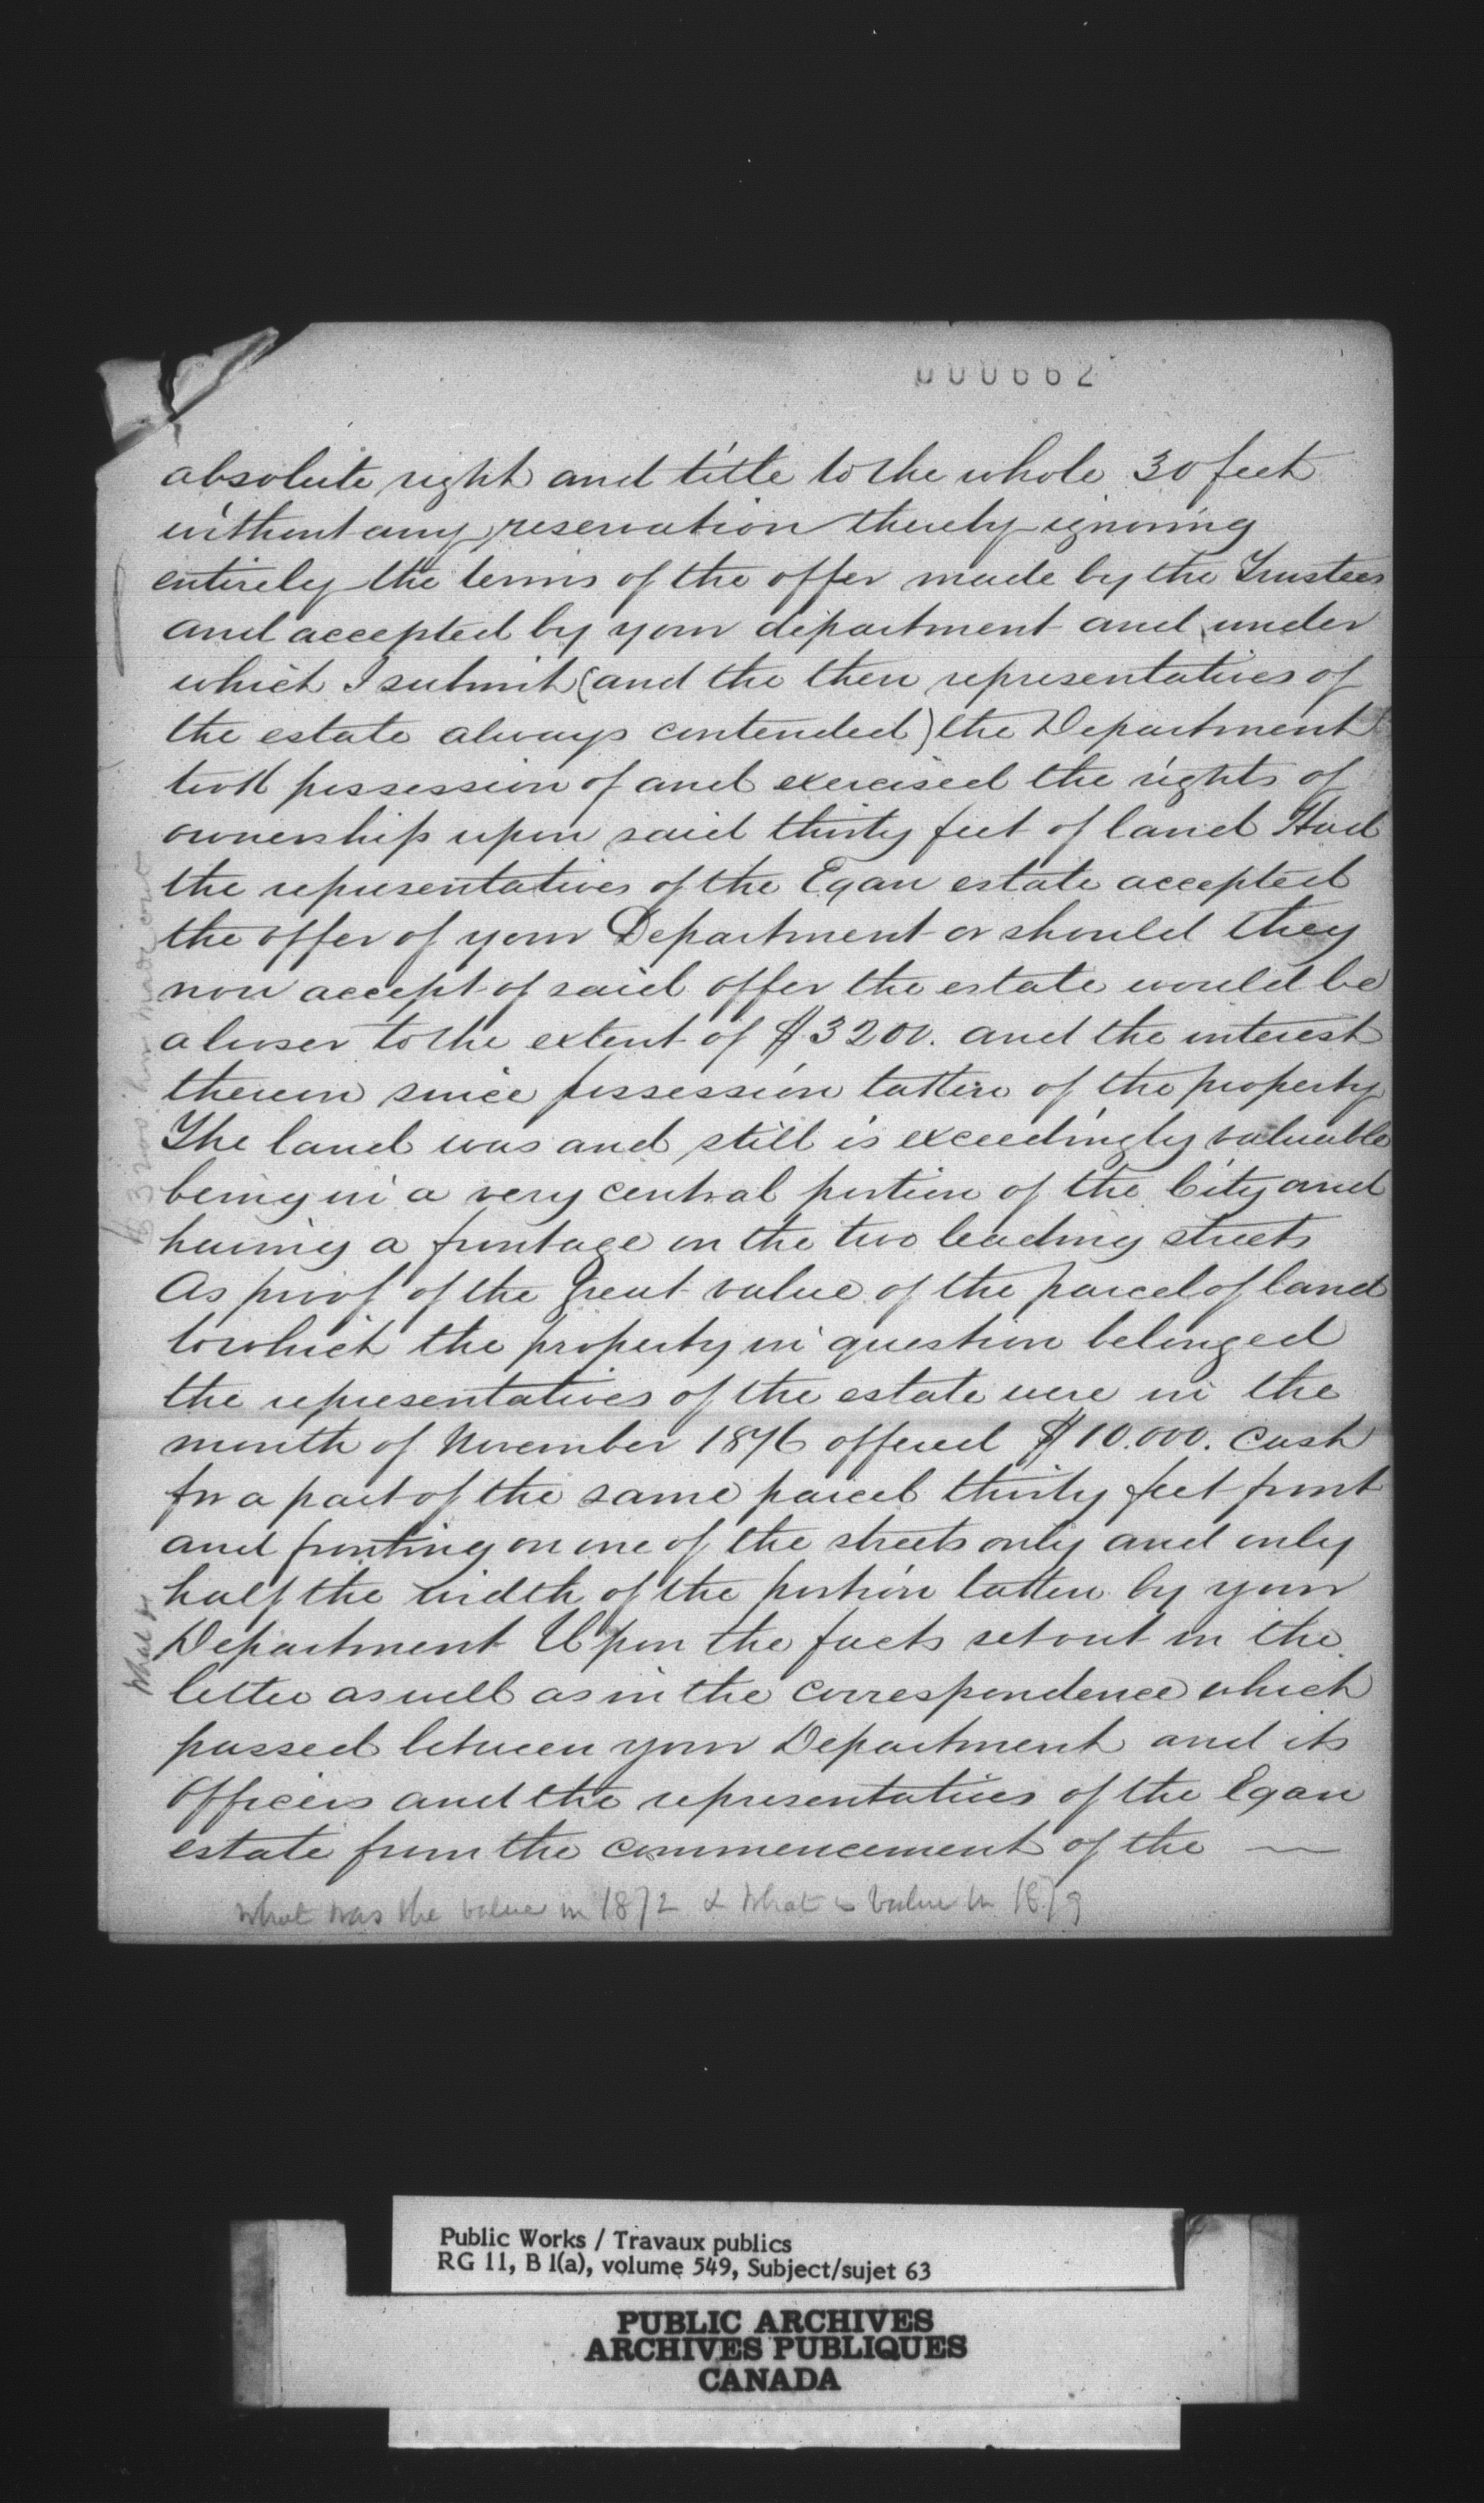 000662
absolute right and title to the whole 30 feet
without any reservation thereby ignoring
entirely the terms of the offer made by the Trustees
and accepted by your department and under
which I submit (and the then representatives of
the estate always contended) the Department
took possession of and exercised the rights of
ownership upon said thirty feet of land Had
the representatives of the Egan estate accepted
the offer of your Department or should they
now accept of said offer the estate would be
a loser to the extent of $3200. and the interest
thereon since possession taken of the property
The land was and still is exceedingly valuable
being in a very central portion of the City and
having a frontage on the two leading streets
As proof of the great value of the parcel of land
to which the property in question belonged
the representatives of the estate were in the
month of November 1876 offered $10.000. cash
for a part of the same parcel thirty feet front
and fronting on one of the streets only and only
half the width of the portion taken by your
Department Upon the facts set out in the
letter as well as in the correspondence which
passed between your Department and its
Officers and the representatives of the Egan
estate from the commencement of the —
What was the value in 1872 & What is value in 1879
$3200. how made out
What
Public Works / Travaux publics
RG 11, B 1(a), volume 549, Subject/sujet 63
PUBLIC ARCHIVES
ARCHIVES PUBLIQUES
CANADA